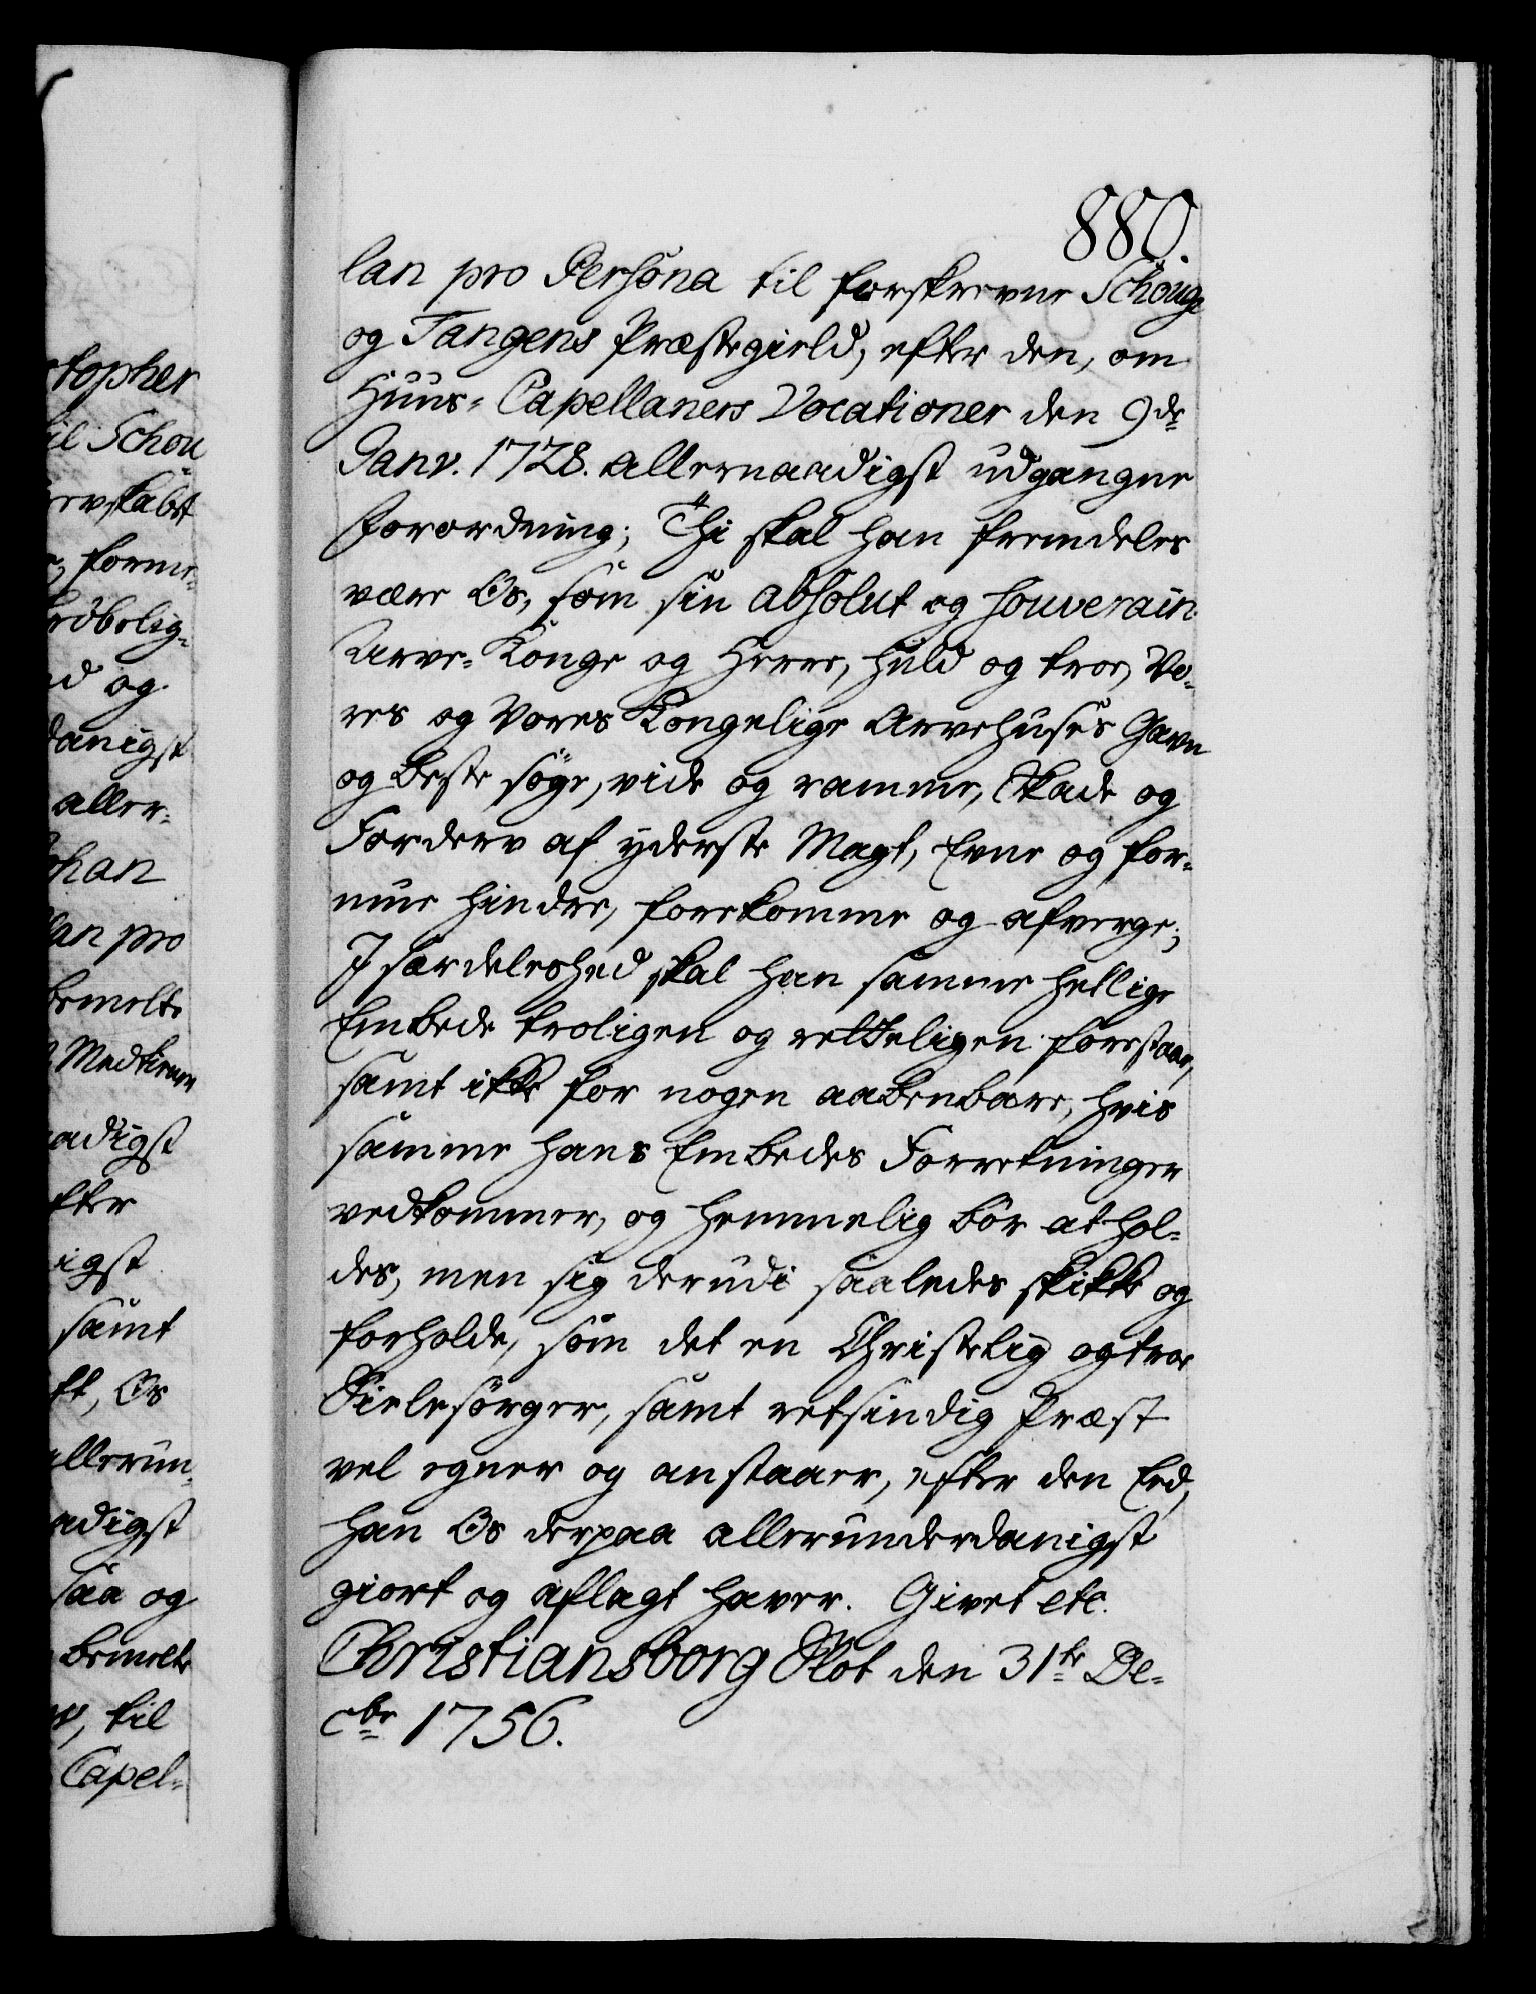 880.
lan pro Persona til forskrevne Schouge
og Tangens Præstegield, efter den, om
Huus-Capellaners Vocationer den 9de
Janv. 1728. allernaadigst udgangne
Forordning; Thi skal han fremdeles
være Os, som sin absolut og souverain
Arve-Konge og Herre, huld og troe, Vo-
res og Vores Kongelige Arvehuses Gavn
og beste søge, vide og ramme, Skade og
Forderv af yderste Magt, Evne og for-
mue hindre, forekomme og afverge;
J særdeleshed skal han samme hellige
Embede troligen og retteligen forestaae,
samt ikke for nogen aabenbare, hvis
samme hans Embedes Forretninger
vedkommer, og hemmelig bør at hol-
des, men sig derudi saaledes skikke og
forholde, som det en Christelig og troe
Sielesørger, samt retsindig Præst
vel egner og anstaaer, efter den Eed,
han Os derpaa allerunderdanigst
giort og aflagt haver. Givet etc.
Christiansborg Slot den 31te De-
cbr 1756.
topher
til Schou
levskabet
forme-
og
danigst
aller-
han
lan pro
bemelte
adigst
efter
igst
samt
Os
allerun-
adigst
saa og
bemelte
til
Capel-